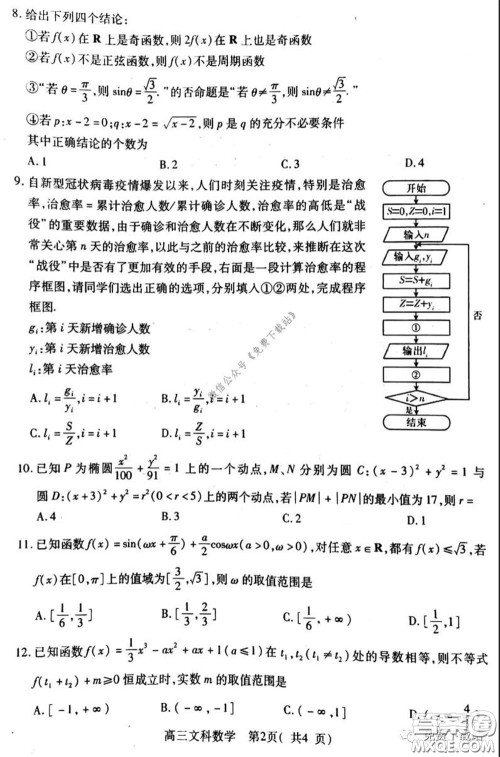 8. 给出下列四个结论:
①若f(x)在 R 上是奇函数,则2f(x)在 R 上也是奇函数
②若f(x)不是正弦函数,则f(x)不是周期函数
③“若θ=π/3,则sinθ=√3/2.”的否命题是“若θ≠π/3,则sinθ≠√3/2.”
④若p:x-2=0;q:x-2=√(x-2),则p是q的充分不必要条件
其中正确结论的个数为
A. 1 B. 2 C. 3 D. 4
9. 自新型冠状病毒疫情爆发以来,人们时刻关注疫情,特别是治愈
率,治愈率=累计治愈人数/累计确诊人数,治愈率的高低是“战
役”的重要数据,由于确诊和治愈人数在不断变化,那么人们就非
常关心第n天的治愈率,以此与之前的治愈率比较,来推断在这次
“战役”中是否有了更加有效的手段,右面是一段计算治愈率的程
序框图,请同学们选出正确的选项,分别填入①②两处,完成程序
框图.
gᵢ:第i天新增确诊人数
yᵢ:第i天新增治愈人数
lᵢ:第i天治愈率
A. lᵢ=gᵢ/yᵢ,i=i+1 B. lᵢ=yᵢ/gᵢ,i=i+1
C. lᵢ=S/Z,i=i+1 D. lᵢ=Z/S,i=i+1
开始
S=0,Z=0,i=1
输入n
输入gᵢ,yᵢ
S=S+gᵢ
Z=Z+yᵢ
①
输出lᵢ
②
i>n
否
是
结束
微信公众号《免费下载站》
10. 已知P为椭圆x²/100+y²/91=1上的一个动点,M、N分别为圆C:(x-3)²+y²=1与
圆D:(x+3)²+y²=r²(0<r<5)上的两个动点,若|PM|+|PN|的最小值为17,则r=
A. 4 B. 3 C. 2 D. 1
11. 已知函数f(x)=sin(ωx+π/6)+a/2cosωx(a>0,ω>0),对任意x∈R,都有f(x)≤√3,若
f(x)在[0,π]上的值域为[3/2,√3],则ω的取值范围是
A. [1/6,1/3] B. [1/3,2/3] C. [1/6,+∞) D. [1/2,1]
12. 已知函数f(x)=1/3x³-ax²+ax+1(a≤1)在t₁,t₂(t₁≠t₂)处的导数相等,则不等式
f(t₁+t₂)+m≥0恒成立时,实数m的取值范围是
A. [-1,+∞) B. (-∞,-1] C. (-∞,1]
高三文科数学 第2页( 共4 页)
答案圈
MXQE.COM